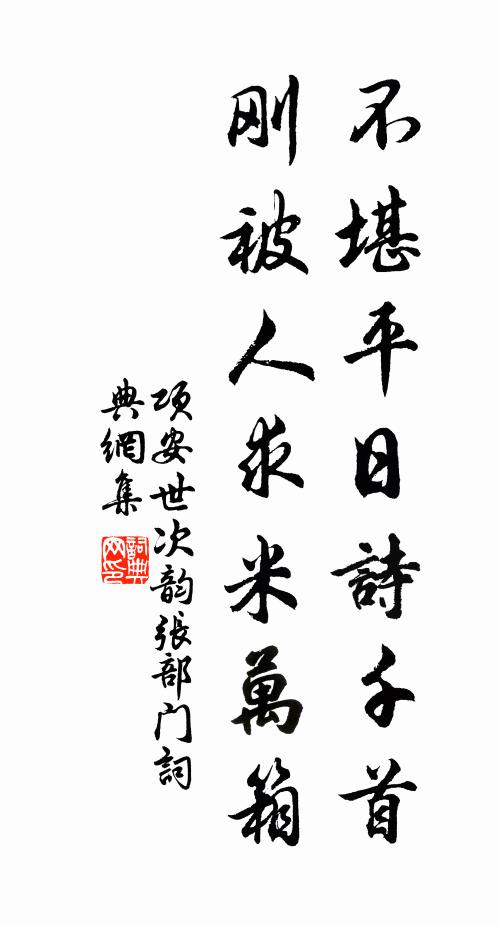 不堪平日詩千首
刚被人求米萬箱
項安世次韵張部门詞
典網集
詞典网印